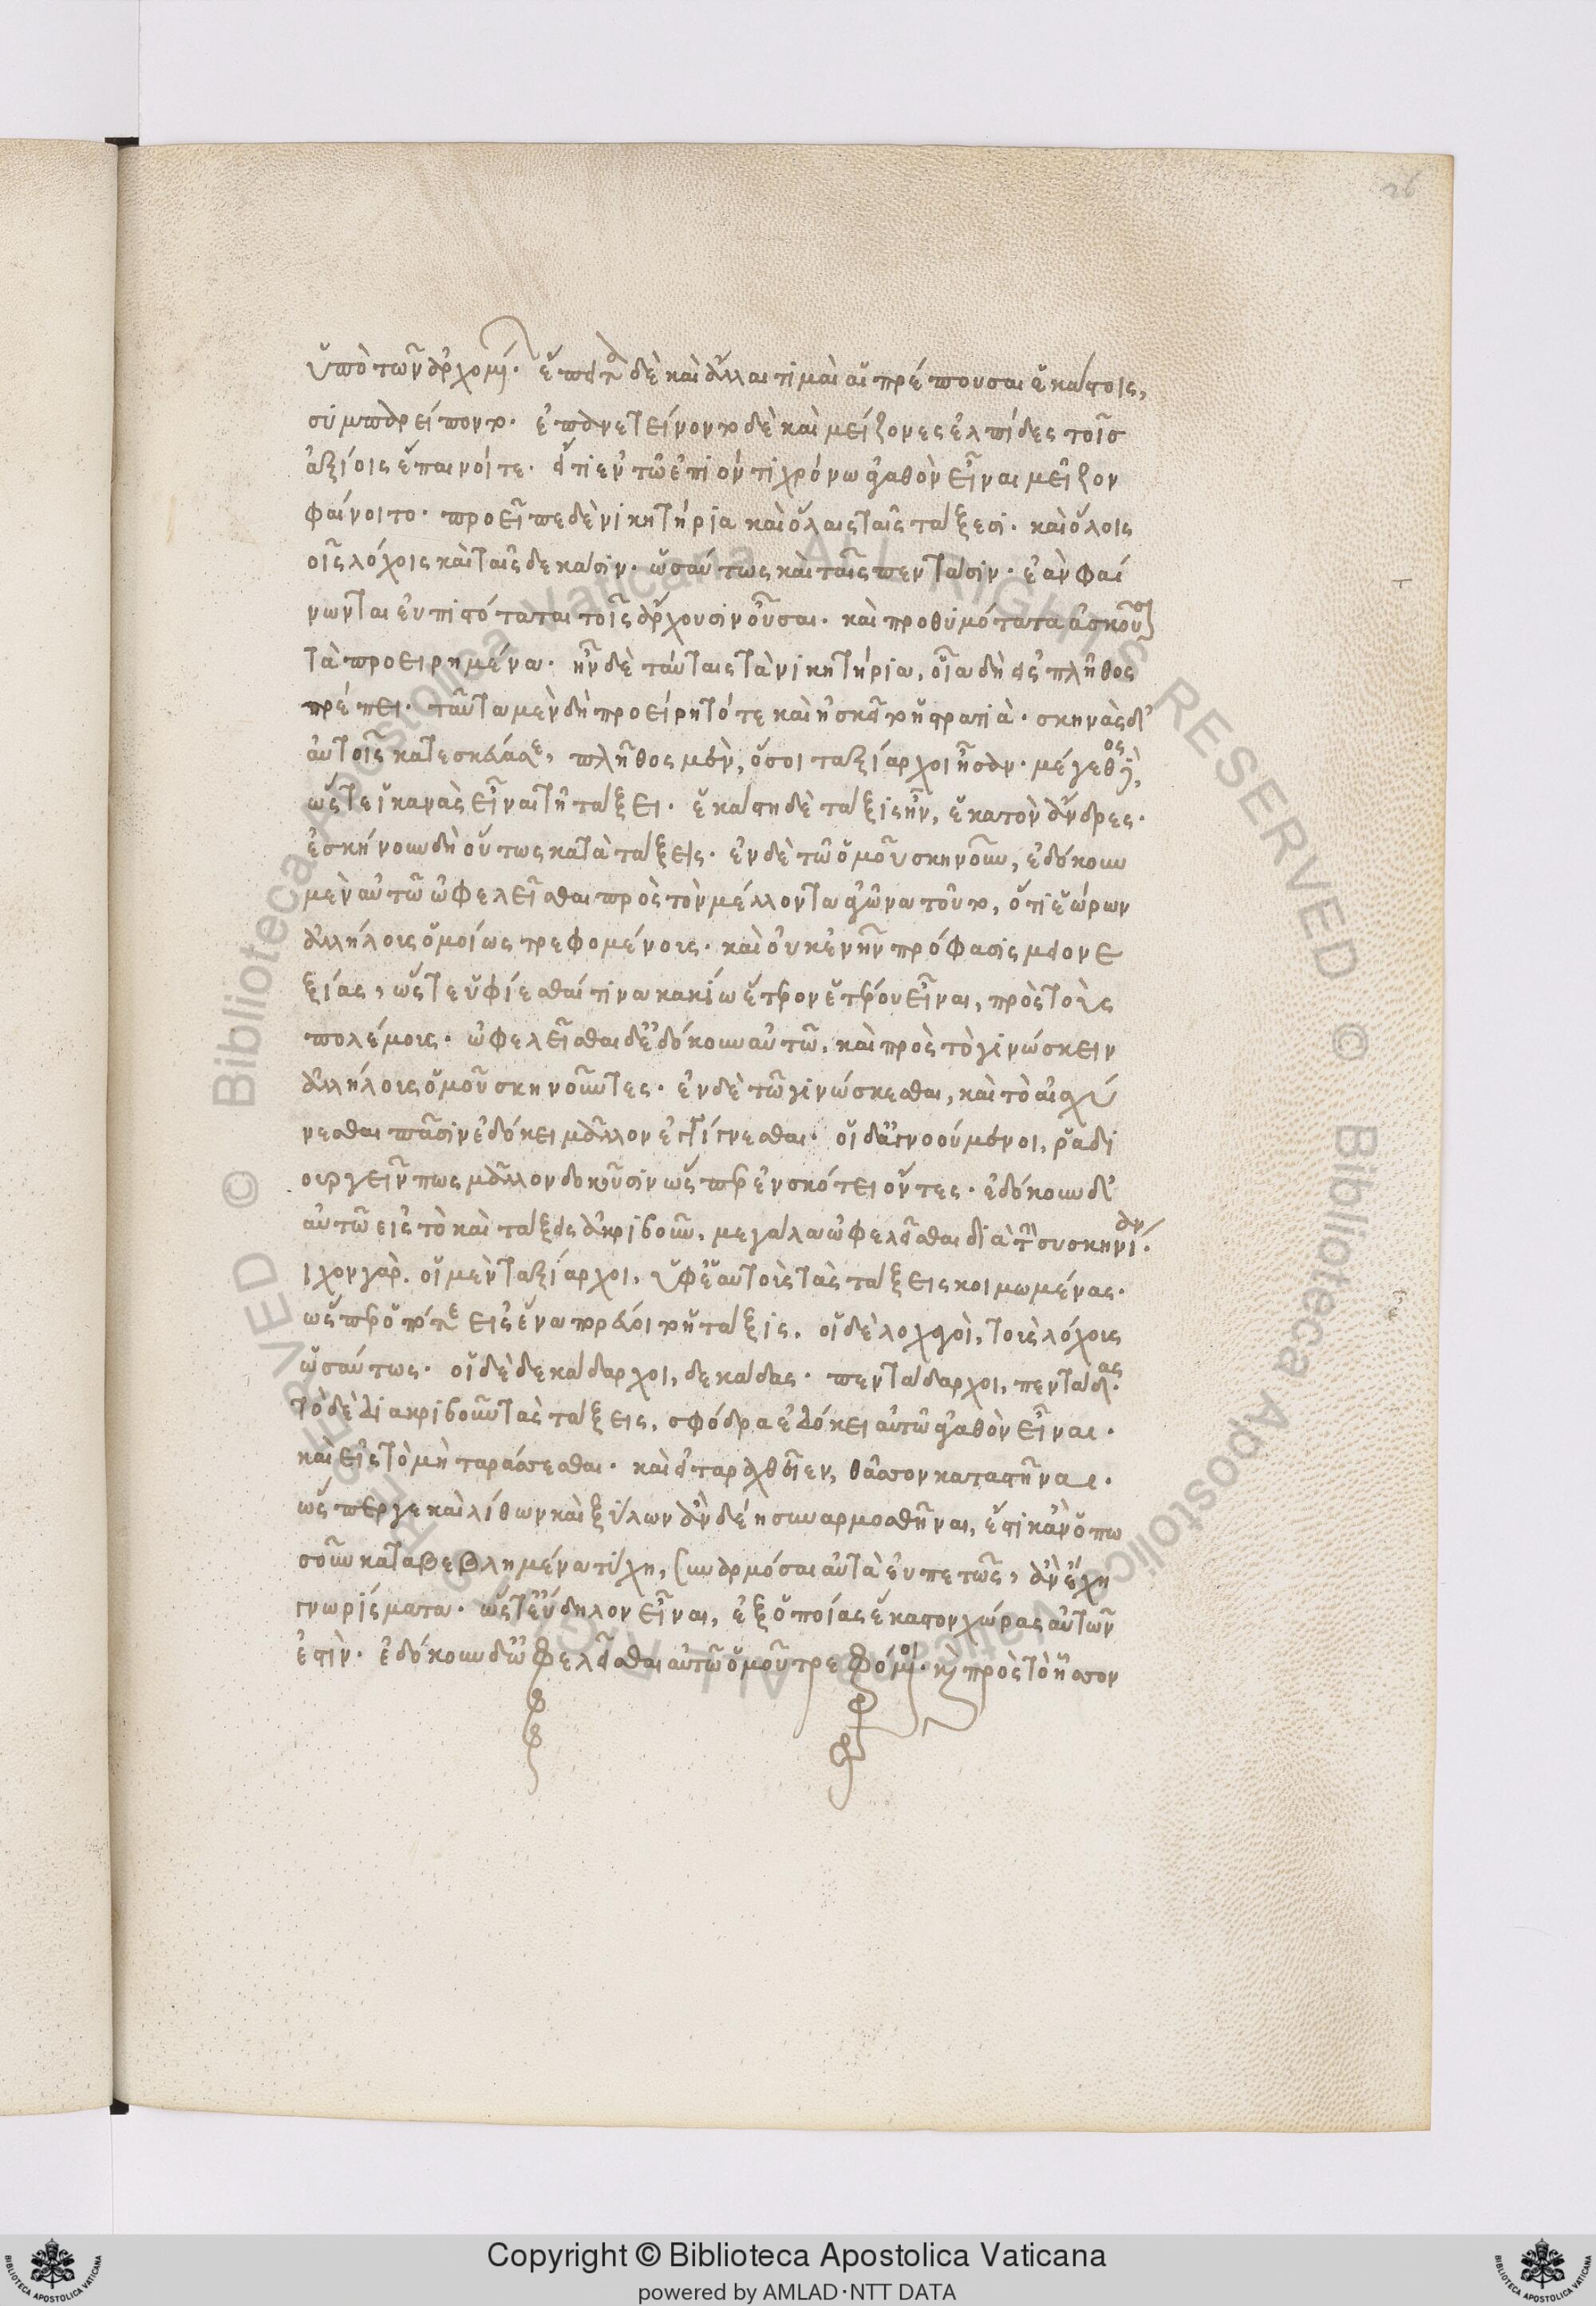 26
ὑπὸ τῶν ἀρχομένων. ἔπειτα δὲ καὶ ἄλλαι τιμαὶ αἱ πρέπουσαι ἑκάστοις,
συμπαρείποντο. ἐπανετείνοντο δὲ καὶ μείζονες ἐλπίδες τοῖς
ἀξίοις ἐπαινοῖτε. εἴτι ἐν τῶ ἐπιόντι χρόνω ἀγαθὸν εἶναι μεῖζον
φαίνοιτο. προεῖπε δὲ νικητήρια καὶ ὅλαις ταῖς τάξεσι. καὶ ὅλοις
οις λόχοις καὶ ταῖς δεκάσιν. ὡσαύτως καὶ ταῖς πεντάσιν. ἐὰν φαί
νωνται εὐπιστόταται τοῖς ἄρχουσιν οὖσαι. καὶ προθυμότατα ἀσκοῦσαι
τὰ προειρημένα. ἦν δὲ ταύταις τὰ νικητήρια, οἷα δὴ εἰς πλῆθος
πρέπει. ταῦτα μὲν δὴ προείρητό τε καὶ ἠσκεῖτο ἡ στρατιὰ. σκηνὰς δ'
αὐτοῖς κατεσκεύασε, πλῆθος μὲν, ὅσοι ταξίαρχοι ἦσαν. μέγεθος δὲ,
ὥστε ἱκανὰς εἶναι τῆ τάξει. ἑκάστη δὲ τάξις ἦν, ἑκατὸν ἄνδρες.
ἐσκήνουν δὴ οὕτως κατὰ τάξεις. ἐν δὲ τῶ ὁμοῦ σκηνοῦν, ἐδόκουν
μὲν αὐτῶ ὠφελεῖσθαι πρὸς τὸν μέλλοντα ἀγῶνα τοῦτο, ὅτι ἑώρων
ἀλλήλοις ὁμοίως τρεφομένοις. καὶ οὐκ ἐνῆν πρόφασις μειονε
ξίας, ὥστε ὑφίεσθαί τινα κακίω ἕτερον ἑτέρου εἶναι, πρὸς τοὺς
πολέμοις. ὠφελεῖσθαι δὲ ἐδόκουν αὐτῶ, καὶ πρὸς τὸ γινώσκειν
ἀλλήλοις ὁμοῦ σκηνοῦντες. ἐν δὲ τῶ γινώσκεσθαι, καὶ τὸ αἰσχύ
νεσθαι πᾶσιν ἐδόκει μᾶλλον ἐγγίγνεσθαι. οἱ δ' ἀγνοούμενοι, ῥαδι
ουργεῖν πως μᾶλλον δοκοῦσιν ὥσπερ ἐν σκότει ὄντες. ἐδόκουν δ'
αὐτῶ εἰς τὸ καὶ τάξεις ἀκριβοῦν, μεγάλα ὠφελεῖσθαι διὰ τὴν συσκηνίαν.
ιχον γὰρ. οἱ μὲν ταξίαρχοι, ὑφ' ἑαυτοῖς τὰς τάξεις κοιμωμένας.
ὥσπερ ὁπότε εἰς ἕνα πορεύοιτο ἡ τάξις. οἱ δὲ λοχαγοὶ, τοις λόχοις
ὡσαύτως. οἱ δὲ δεκάδαρχοι, δεκάδας. πεντάδαρχοι, πεντάδας.
τὸ δὲ διακριβοῦν τὰς τάξεις, σφόδρα ἐδόκει αὐτῶ ἀγαθὸν εἶναι.
καὶ εἰς τὸ μὴ ταράσσεσθαι. καὶ εἰ ταραχθεῖεν, θᾶσσον καταστῆναι.
ὥσπερ γε καὶ λίθων καὶ ξύλων ἂν δέη συναρμοσθῆναι, ἔστι κἂν ὁπω
σοῦν καταβεβλημένα τύχη, συναρμόσαι αὐτὰ εὐπετῶς, ἂν ἔχη
γνωρίσματα. ὥστ' εὔδηλον εἶναι, ἐξ ὁποίας ἕκαστον χώρας αὐτῶν
ἐστὶν. ἐδόκουν δ' ὠφελεῖσθαι αὐτῶ ὁμοῦ τρεφόμενοι. καὶ πρὸς τὸ ἧσσον
Copyright © Biblioteca Apostolica Vaticana
powered by AMLAD·NTT DATA
© Biblioteca Apostolica Vaticana ALL RIGHTS RESERVED